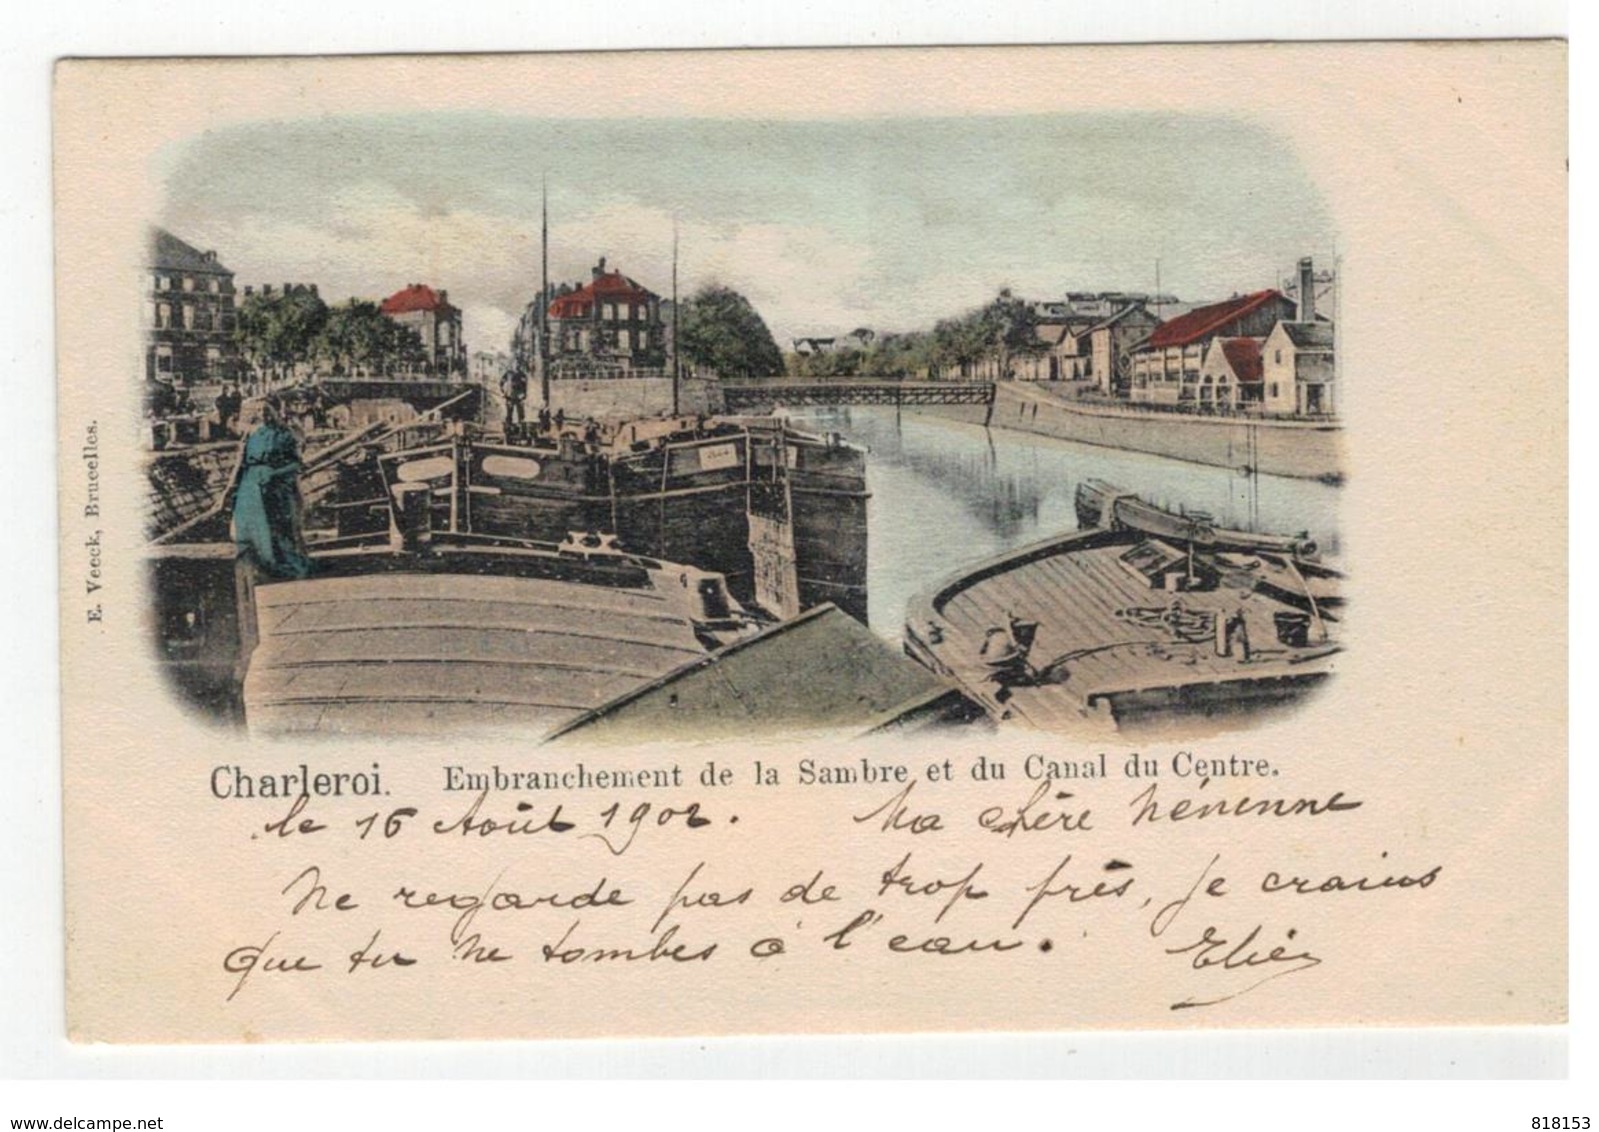 E. Veeck, Bruxelles.
Charleroi. Embranchement de la Sambre et du Canal du Centre.
le 16 Août 1902. Ma chère Nénenne
Ne regarde pas de trop près, je crains
que tu ne tombes à l'eau. Elié
www.delcampe.net
818153